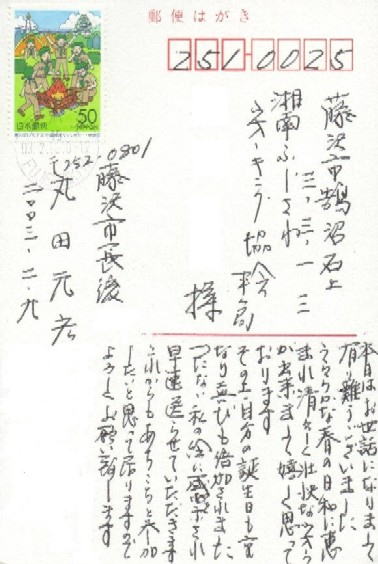 郵便はがき
251-0025
藤沢市鵠沼石上
二、三、一三
湘南ふじさわ
ウォーキング協会
事務局
様
〒252-0801
藤沢市長後
丸田元宏
二〇〇三・二・九
日本郵便
50
NIPPON
本日はお世話になりまして
有り難うございました
うららかな春の日和に恵
まれ清々しく壮快な
が出来まして嬉しく思って
おります
その上自分の誕生日も
なり喜びも倍加されました
つたない私の
早速送らせていただきます
これからもあちこちと参加
したいと思って居りますので
よろしくお願い致します